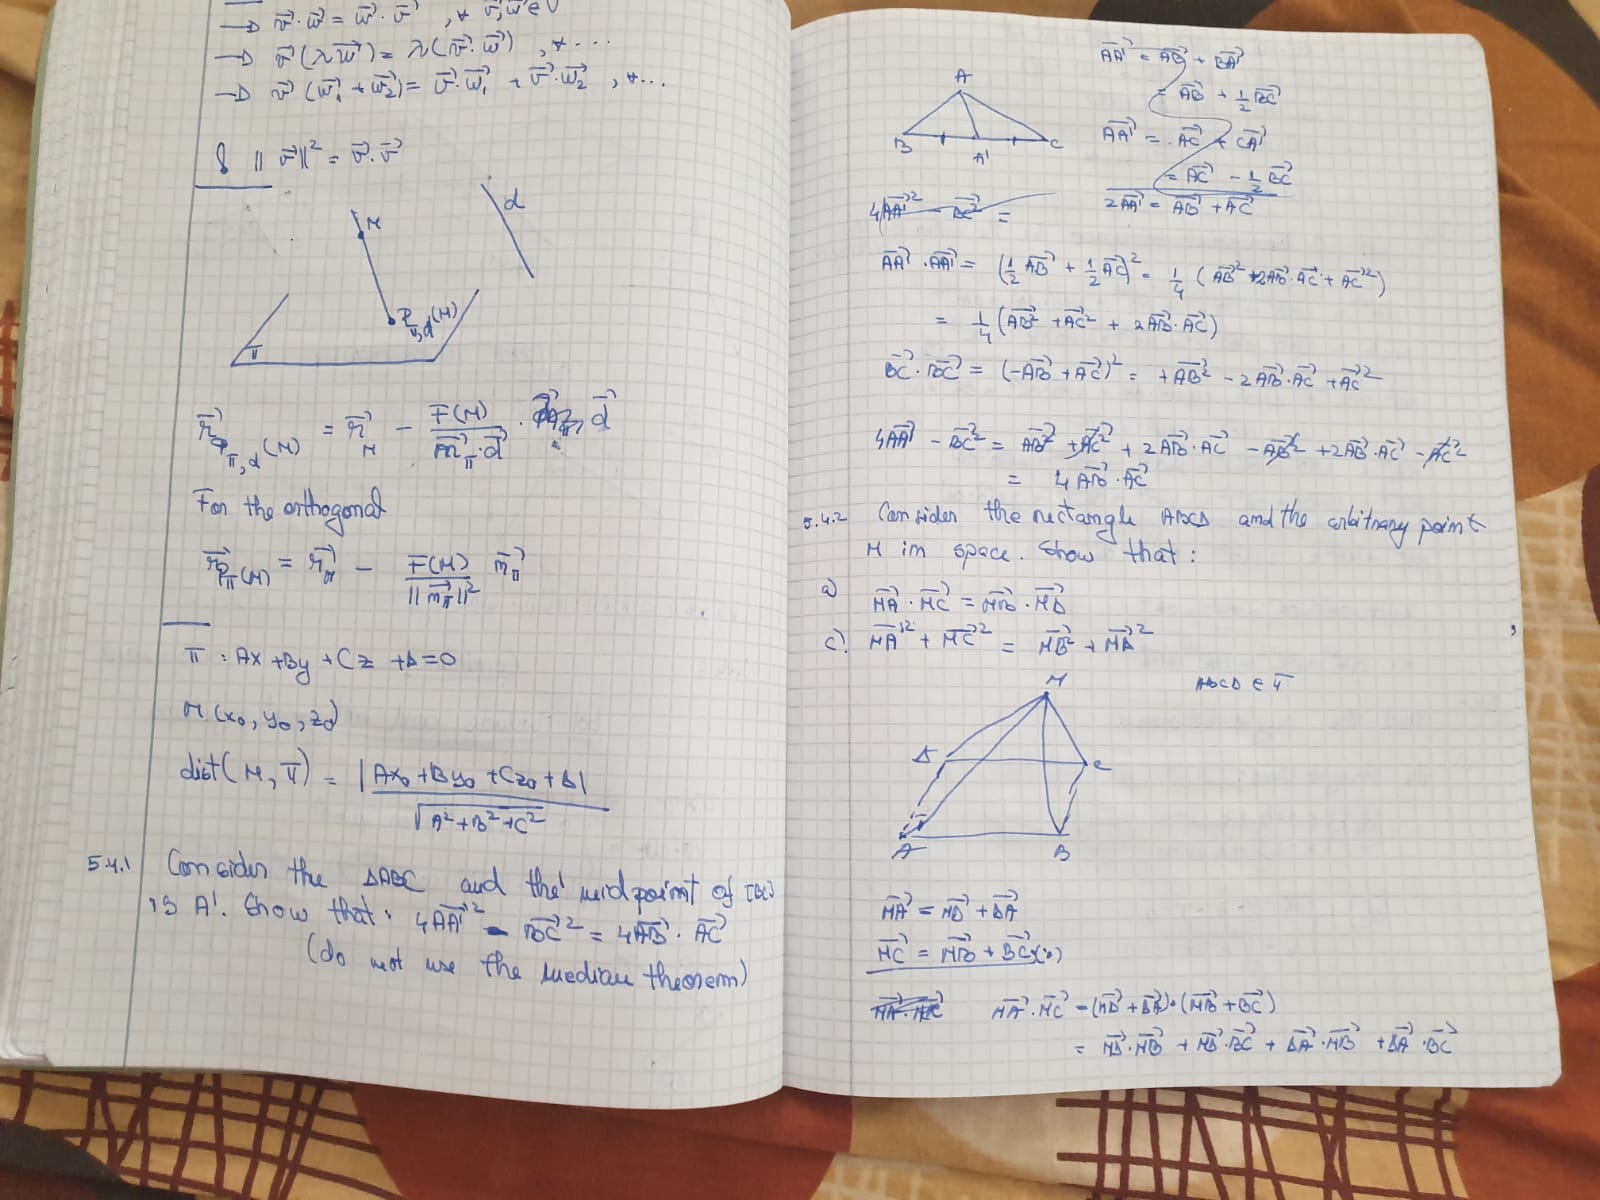 → v⃗·w⃗ = w⃗·v⃗ , ∀ v⃗,w⃗ ∈ V
→ v⃗(λw⃗) = λ(v⃗·w⃗) , ∀...
→ v⃗(w⃗₁ + w⃗₂) = v⃗·w⃗₁ + v⃗·w⃗₂ , ∀...
||v⃗||² = v⃗·v⃗
d
M
P_π,d(M)
π
r⃗_P_π,d(M) = r⃗_M − F(M)/(n⃗_π·d⃗) · d⃗
For the orthogonal
r⃗_P_π(M) = r⃗_M − F(M)/||n⃗_π||² n⃗_π
π : Ax+By+Cz+D=0
M(x₀, y₀, z₀)
dist(M, π) = |Ax₀+By₀+Cz₀+D| / √(A²+B²+C²)
5.4.1 Consider the ΔABC and the midpoint of [BC]
is A'. Show that: 4AA'⃗² - BC⃗² = 4AB⃗·AC⃗
(do not use the median theorem)
A
B
A'
C
AA'⃗ = AB⃗ + BA'⃗
= AB⃗ + 1/2 BC⃗
AA'⃗ = AC⃗ + CA'⃗
= AC⃗ − 1/2 BC⃗
2AA'⃗ = AB⃗ + AC⃗
4AA'⃗² − BC⃗² =
AA'⃗·AA'⃗ = (1/2 AB⃗ + 1/2 AC⃗)² = 1/4 (AB⃗² + 2AB⃗·AC⃗ + AC⃗²)
= 1/4 (AB⃗² + AC⃗² + 2AB⃗·AC⃗)
BC⃗·BC⃗ = (−AB⃗ + AC⃗)² = +AB⃗² − 2AB⃗·AC⃗ + AC⃗²
4AA'⃗ − BC⃗² = AB⃗² + AC⃗² + 2AB⃗·AC⃗ − AB⃗² + 2AB⃗·AC⃗ − AC⃗²
= 4AB⃗·AC⃗
5.4.2 Consider the rectangle ABCD and the arbitrary point
M in space. Show that:
a) MA⃗·MC⃗ = MB⃗·MD⃗
c) MA⃗² + MC⃗² = MB⃗² + MD⃗²
M
ABCD ∈ π
D
C
A
B
MA⃗ = MD⃗ + DA⃗
MC⃗ = MB⃗ + BC⃗ (·)
MA⃗·MC⃗ = (MD⃗ + DA⃗)·(MB⃗ + BC⃗)
= MD⃗·MB⃗ + MD⃗·BC⃗ + DA⃗·MB⃗ + DA⃗·BC⃗